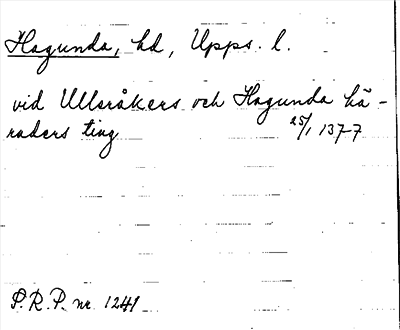 Hagunda, hd, Upps. l.
vid Ullsråkers och Hagunda hä-
raders ting 25/1 1377
P.R.P. nr 1241